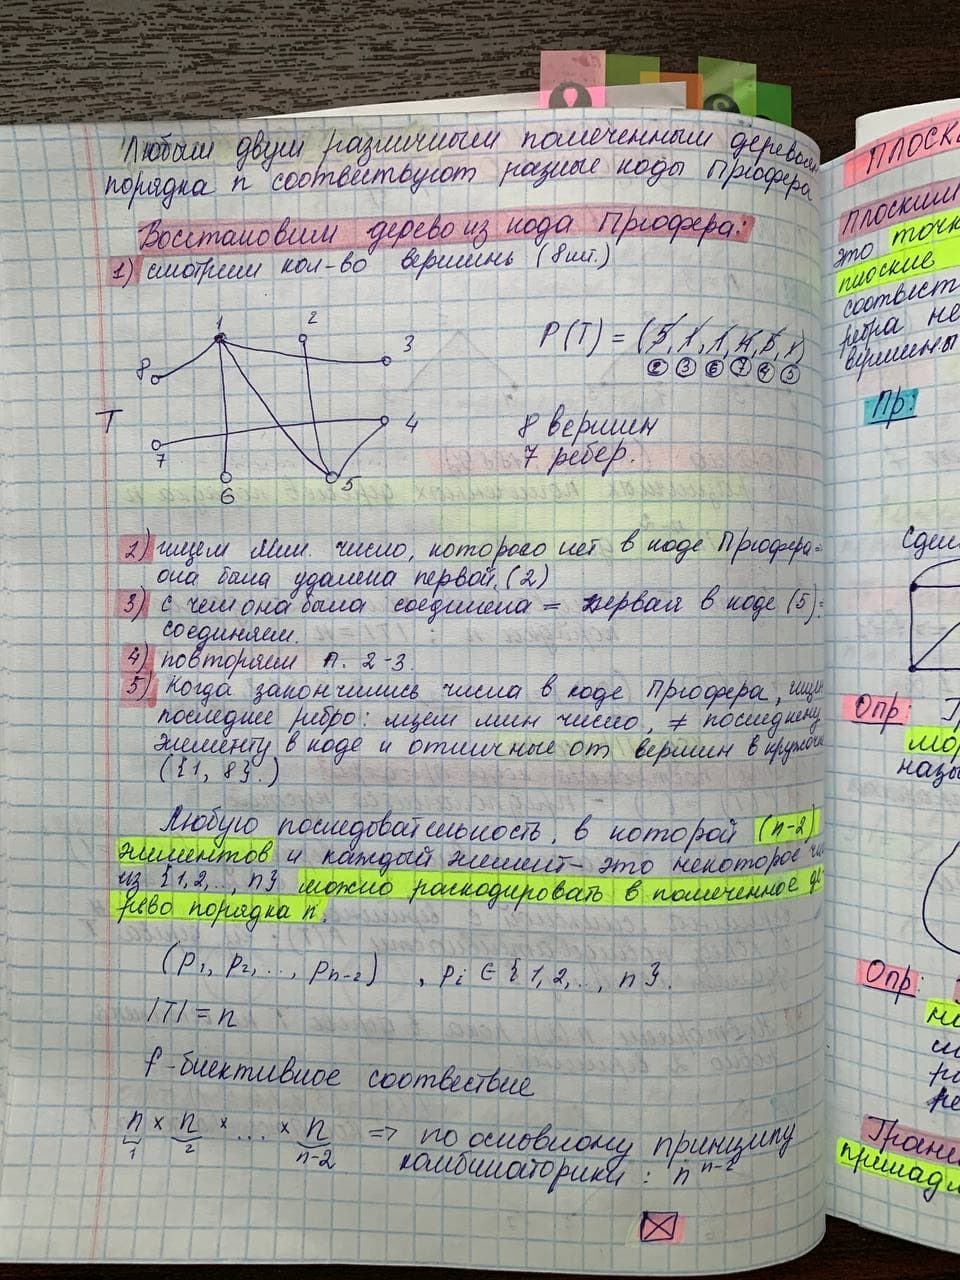 Любым двум различным помеченным деревьям
порядка n соотвествуют разные коды Прюфера
Восстановим дерево из кода Прюфера:
1) смотрим кол-во вершинь (8шт.)
1 2 3
8
T
7 4
6 5
P(T) = (5, 1, 1, 4, 5, 1)
2 3 6 7 4 5
8 вершин
7 ребер.
2) ищем мин. число, которого нет в коде Прюфера =
она была удалена первой. (2)
3) с чем она была соединена = первая в коде (5) =
соединяем.
4) повторяем п. 2-3.
5) Когда закончились числа в коде Прюфера, ищем
последнее ребро: ищем мин число, ≠ последнему
элементу в коде и отличные от вершин в кружочк
({1, 8}.)
Любую последовательность, в которой (n-2)
элементов и каждый элемент - это некоторое чи
из {1,2,..., n} можно раскодировать в помеченное де-
рево порядка n.
(p₁, p₂, ..., pₙ₋₂) , pᵢ ∈ {1,2,..., n}.
|T| = n
f - биективное соотвествие
n × n × ... × n => по основному принципу
1 2 n-2 комбинаторики : nⁿ⁻²
ПЛОСК
Плоским
это точк
плоские
соотвест
ребра не
вершины
Пр:
Сдел
Опр:
мор
назы
Опр:
но
ре
Гран
принад